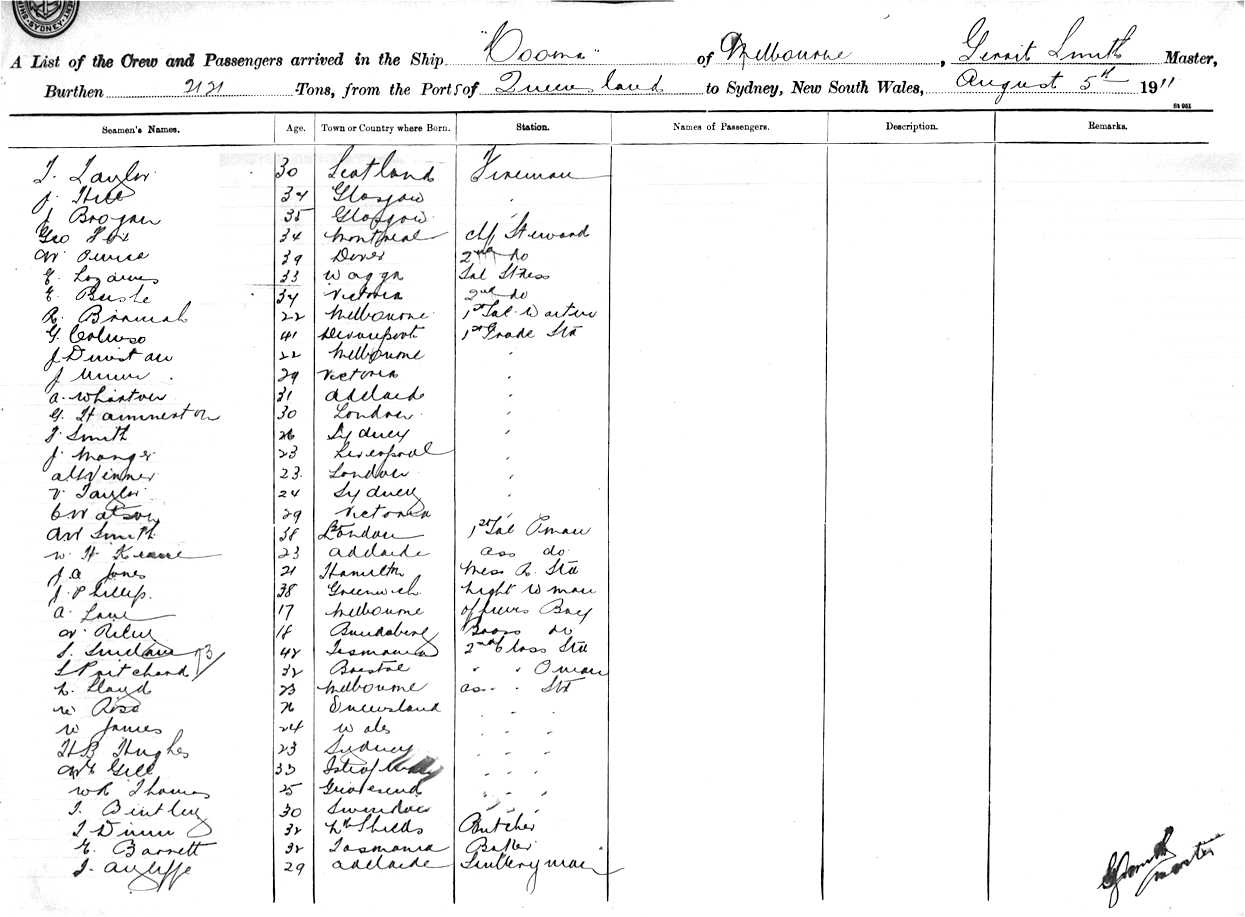 SHIPPING SYDNEY
A List of the Crew and Passengers arrived in the Ship "Cooma" of Melbourne, Gerrit Smith Master,
Burthen 2121 Tons, from the Port of Queensland to Sydney, New South Wales, August 5th 1911
Seamen's Names. Age. Town or Country where Born. Station. Names of Passengers. Description. Remarks.
T. Taylor 30 Scotland Fireman
J. Hill 34 Glasgow "
J Brogan 35 Glasgow "
Geo Fox 34 Montreal Chf Steward
W 39 Dover 2nd do
E. 33 Wagga Sal Stress
E. 34 Victoria 2nd do
R. Bramah 22 Melbourne 1st Sal Waiter
G. 41 Devonport 1st Grade Std
J Dunstan 22 Melbourne "
J 29 Victoria "
A. 31 Adelaide "
G. Hammerston 30 London "
J. Smith 26 Sydney "
J. Manger 23 Liverpool "
23 London "
V. Taylor 24 Sydney "
C Watson 29 Victoria "
AW Smith 38 London 1st Sal Pman
W. H 23 Adelaide ass do
J. A Jones 21 Hamilton Mess R. Std
J. Phillip. 38 Greenwich Night W man
A. Lane 17 Melbourne Officers Boy
W. Riley 18 Bundaberg do
S. Sinclair 42 Tasmania 2nd Class Std
S Pritchard 32 Bristol " "
L. Lloyd 23 Melbourne as " Std
W Ross 26 Queensland " "
W James 24 Wales " " "
H B Hughes 23 Sydney " " "
Gill 33 Isle of " " "
WR Thomas 25 Gravesend " " "
T. Bintley 30 Swindon " "
T 32 Nth Shields Butcher
E. Barrett 32 Tasmania Baker
J. Ayliffe 29 Adelaide
G Smith
Master